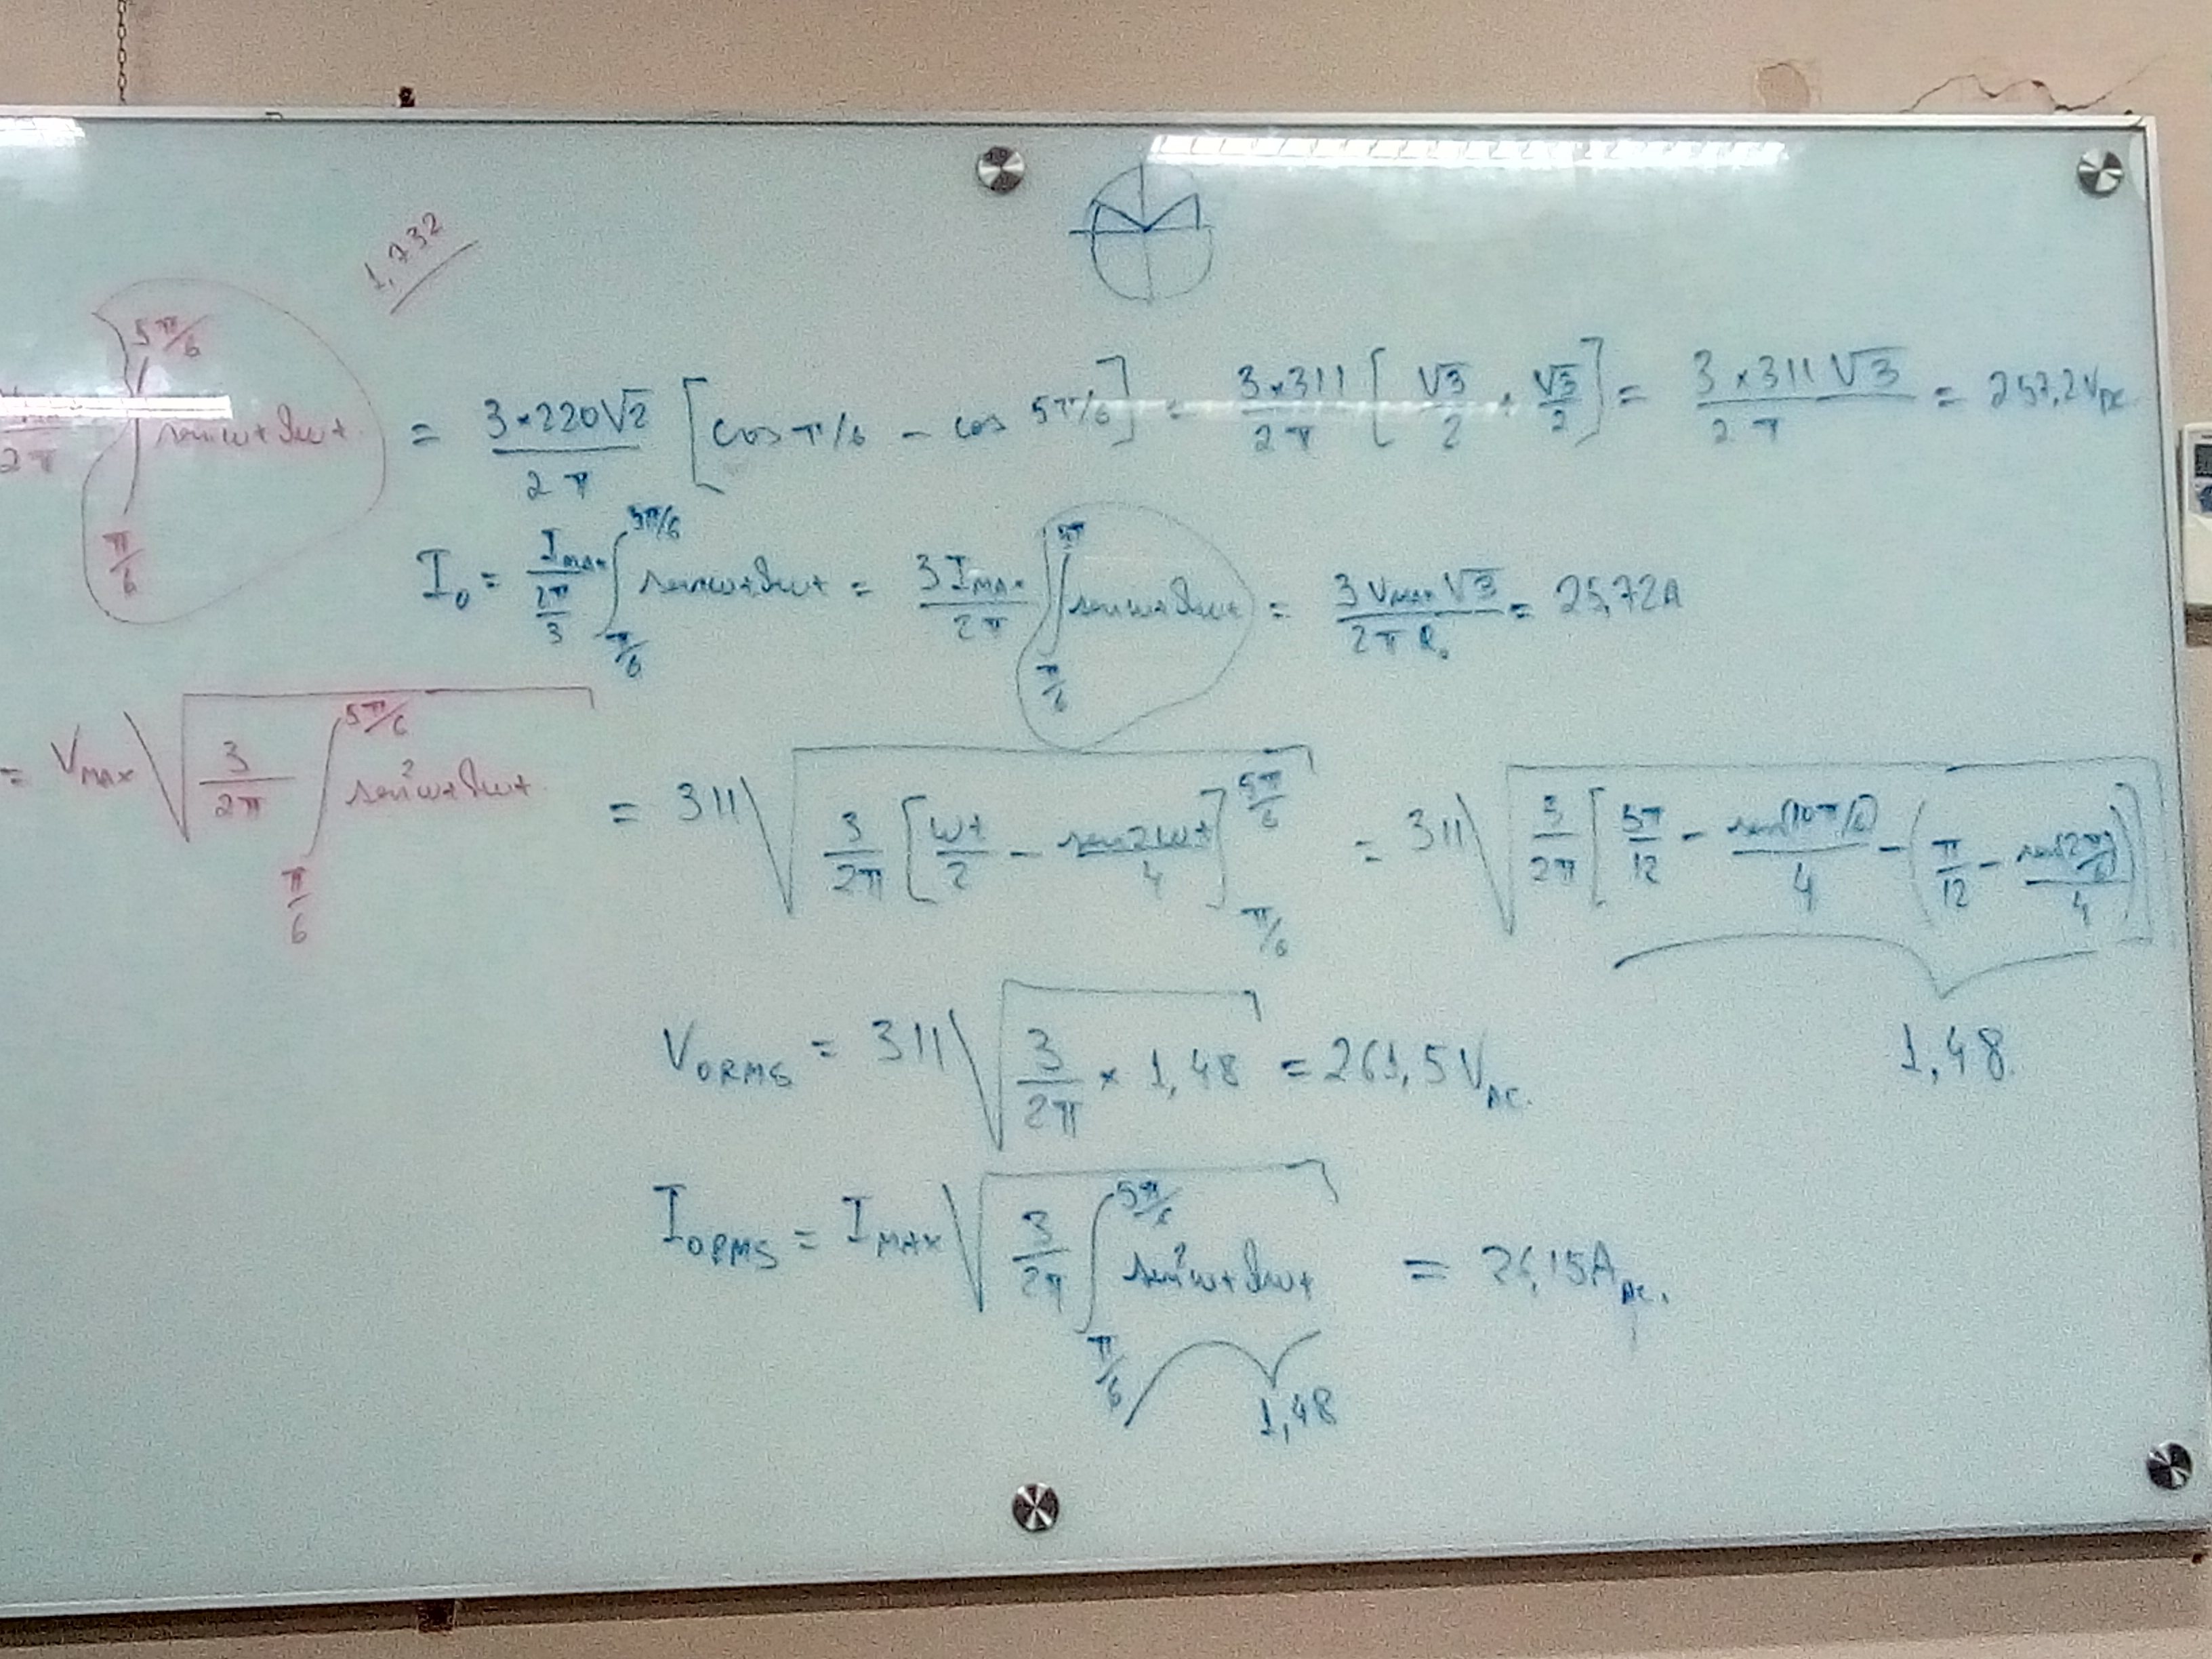 1,732
2π ∫ π/6 5π/6 senωt dωt = 3×220√2 / 2π [cos π/6 - cos 5π/6] = 3×311 / 2π [√3/2 + √3/2] = 3×311√3 / 2π = 257,2 V
I₀ = I_MAX / (2π/3) ∫ π/6 5π/6 senωt dωt = 3 I_MAX / 2π ∫ π/6 5π senωt dωt = 3 V_MAX √3 / 2π R₀ = 25,72A
= V_MAX √( 3/2π ∫ π/6 5π/6 sen²ωt dωt ) = 311 √( 3/2π [ωt/2 - sen2ωt/4] π/6 5π/6 ) = 311 √( 3/2π [5π/12 - sen(10π/6)/4 - (π/12 - sen(2π/6)/4)] )
1,48
V_ORMS = 311 √( 3/2π × 1,48 ) = 261,5 V
I_ORMS = I_MAX √( 3/2π ∫ π/6 5π/6 sen²ωt dωt ) = 26,15A
1,48